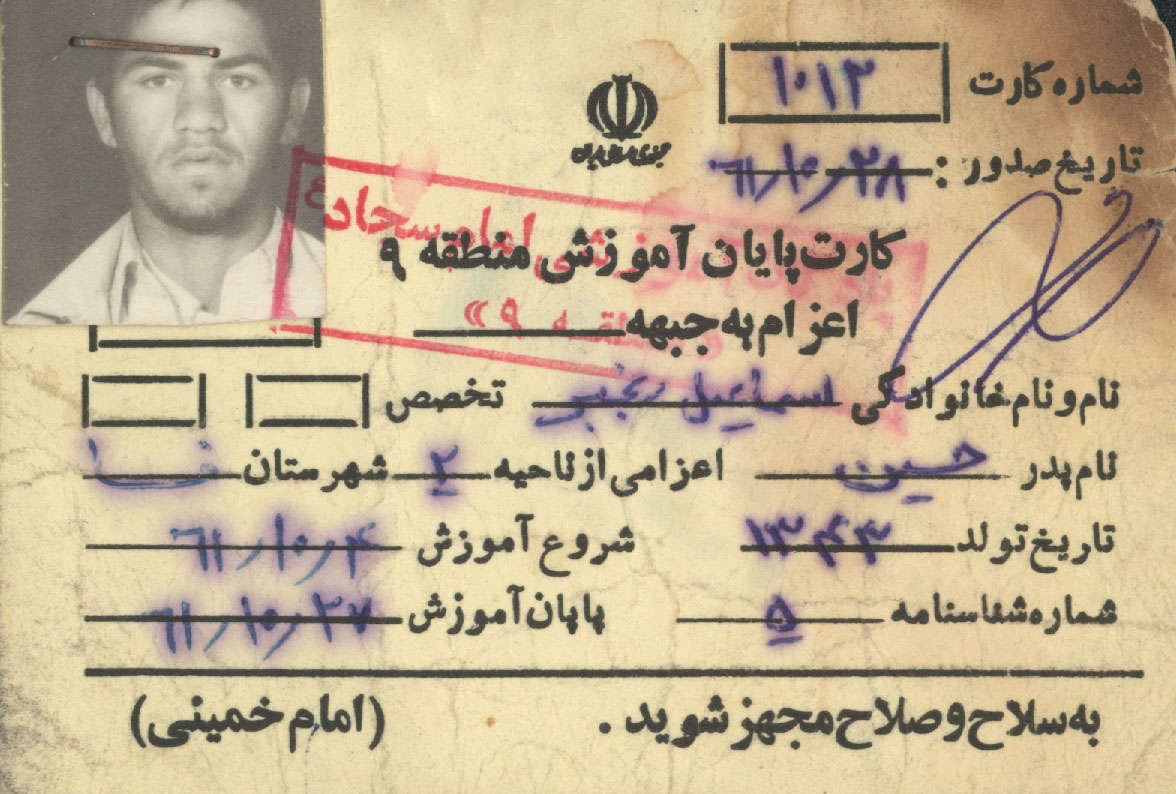 شماره کارت ۱۰۱۳
جمهوری اسلامی ایران
تاریخ صدور: ۶۱/۱۰/۲۸
امام سجاد ع
کارت پایان آموزش منطقه ۹
اعزام به جبهه
منطقه ۹ »
نام و نام خانوادگی اسماعیل تخصص
نام پدر حسین اعزامی از ناحیه ۲ شهرستان فسا
تاریخ تولد ۱۳۴۳ شروع آموزش ۶۱/۱۰/۴
شماره شناسنامه ۵ پایان آموزش ۶۱/۱۰/۲۷
به سلاح و صلاح مجهز شوید . (امام خمینی)